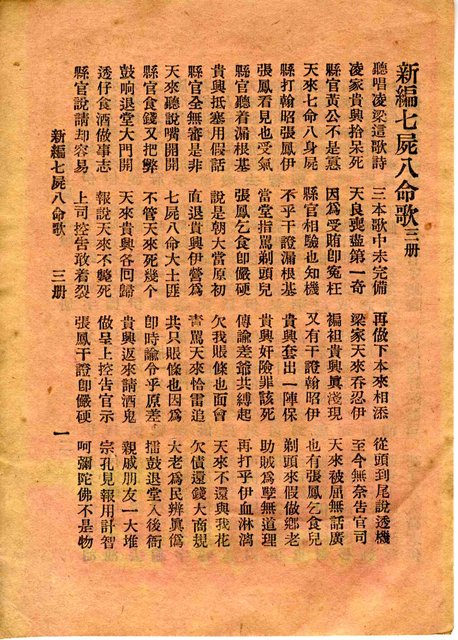 新編七屍八命歌 三册
聽唱凌梁這歌詩 三本歌中未完備 再做下本來相添 從頭到尾說透機
凌家貴興拾呆死 天良喪盡第一奇 梁家天來吞忍伊 至今無奈告官司
縣官黃公不是惷 因為受賄卽冤枉 褊祖貴興眞淺現 天來被屈無話廣
天來七命八身屍 縣官相驗也知機 又有干證翰昭伊 也有張鳳乞食兒
縣打翰昭張鳳伊 不乎干證漏根基 貴興套出一陣保 剃頭來假做鄉老
張鳳看見也受氣 當堂指罵剃頭兒 貴興奸險罪該死 助賊為孽無道理
縣官聽着漏根基 張鳳乞食卽嚴硬 傳諭差爺共縛起 再打乎伊血淋漓
貴興抵塞用假話 說是朝大當原初 欠我賬條也面會 天來不還與我花
縣官全無審是非 直退貴興伊營為 責罵天來恰雷追 欠債還錢大商規
天來聽說嘴開開 七屍八命大土匪 共只賬條也因為 大老為民辨眞偽
縣官食錢又把弊 不管天來死幾个 卽時諭令乎原差 擂鼓退堂入後衙
鼓响退堂大門開 天來貴興各回歸 貴興返來請酒鬼 親戚朋友一大堆
透仔食酒做事志 報說天來不燒死 做呈上控告官示 宗孔見報用計智
縣官說請却容易 上司控告敢着裂 張鳳干證卽嚴硬 呵彌陀佛不是物
新編七屍八命歌 三册 一